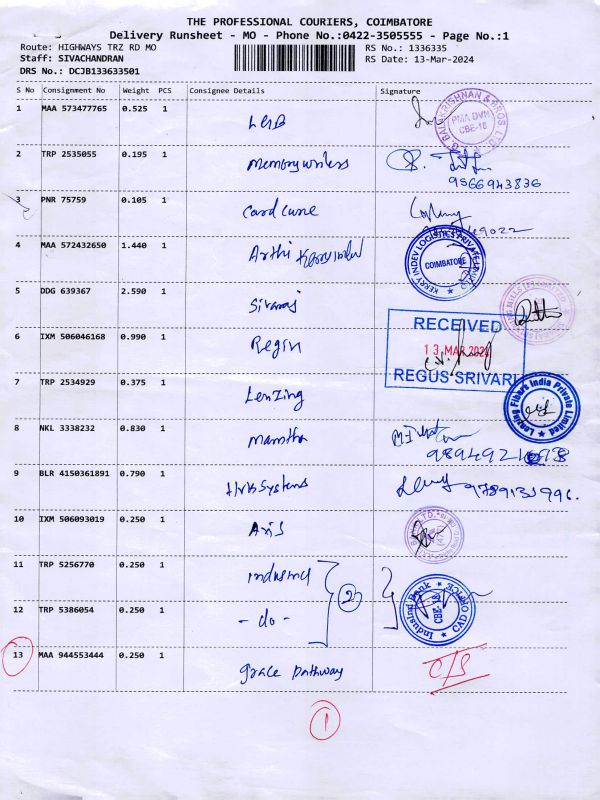 THE PROFESSIONAL COURIERS, COIMBATORE
Delivery Runsheet - MO - Phone No.:0422-3505555 - Page No.:1
Route: HIGHWAYS TRZ RD MO
RS No.: 1336335
Staff: SIVACHANDRAN
RS Date: 13-Mar-2024
DRS No.: DCJB133633501
S No Consignment No Weight PCS Consignee Details Signature
1 MAA 573477765 0.525 1 LGB
PMA DVN
CBE-18
2 TRP 2535055 0.195 1 memory wireless
9566943836
3 PNR 75759 0.105 1
4 MAA 572432650 1.440 1 Arthi Kerry indev
KERRY INDEV LOGISTICS PRIVATE LIMITED
COIMBATORE
5 DDG 639367 2.590 1 Sivaraj
6 IXM 506046168 0.990 1 Regus
RECEIVED
13 MAR 2024
REGUS SRIVARI
7 TRP 2534929 0.375 1 Lenzing
Lenzing Fibers India Private Limited
8 NKL 3338232 0.830 1 mamtha
9 BLR 4150361891 0.790 1 HRK Systems 9789131996.
10 IXM 506093019 0.250 1 Axis
11 TRP 5256770 0.250 1 indusind
2
12 TRP 5386054 0.250 1 - do -
IndusInd Bank
CAD OFFICE
CBE-18
13 MAA 944553444 0.250 1 grace pathway C/S
1